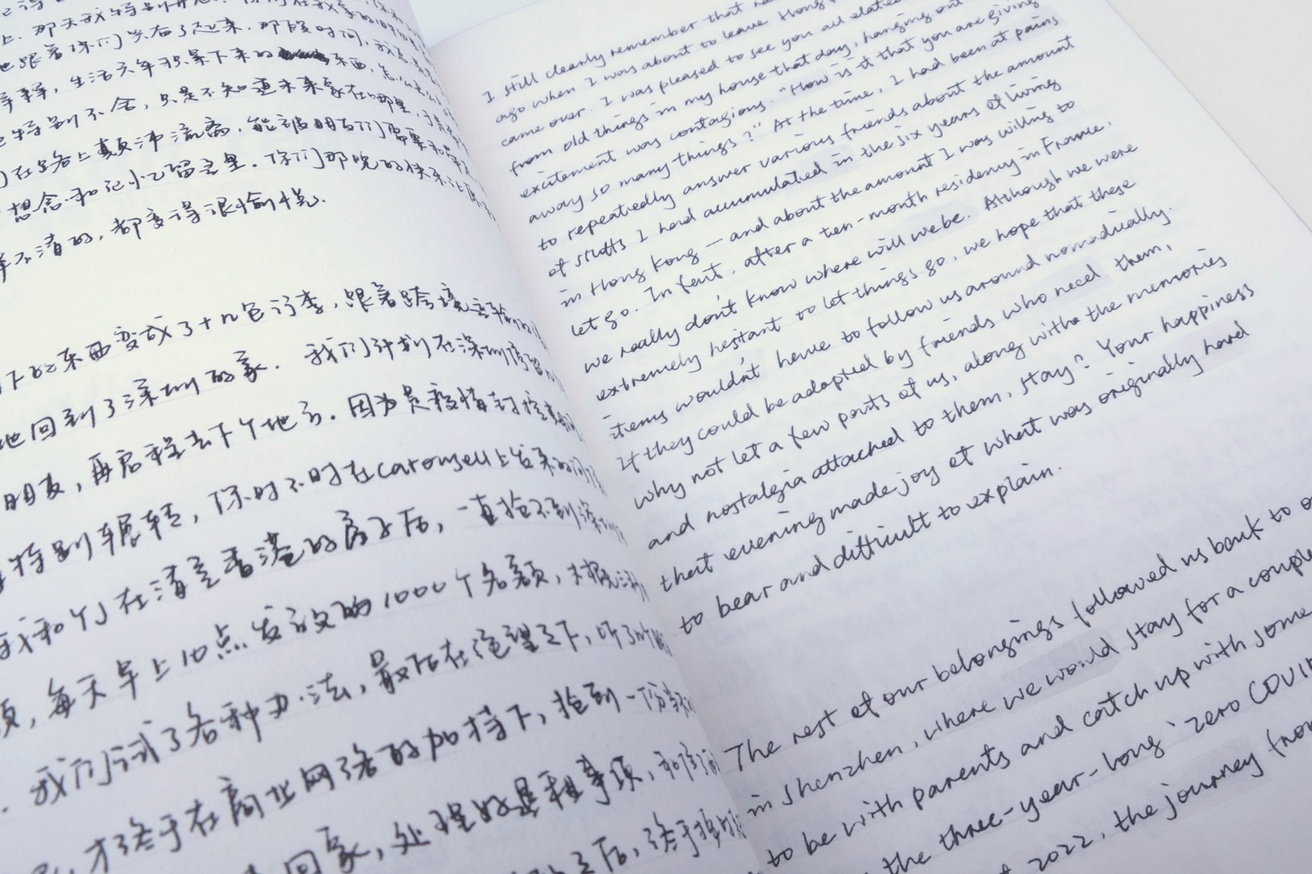 上. 那天我特别
也跟着你们兴奋了起来. 那段时间,
生活六年积累下来的 东西,
特别不舍, 只是不知道未来家在哪里,
在路上颠沛流离, 能被朋友们
想念和记忆留这里. 你们那晚的快乐让
不清的, 都变得很愉悦.
下的东西变成了十几包行李, 跟着跨境
地回到了深圳的家. 我们计划在深圳停留
朋友, 再启程去下个地方. 因为是疫情封控
特别辗转, 你时不时在carousell上发来的问
我和YJ在清空香港的房子后, 一直抢不到深圳
每天早上10点发放的1000个名额, 大概
我们试了各种办法, 最后在绝望之下, 听了
才终于在商业网络的加持下, 抢到一份
回家, 处理好退租事项, 和
之后, 终于
I still clearly remember that
ago when I was about to leave Hong
came over. I was pleased to see you all elated
from old things in my house that day, hanging out
excitement was contagious. "How is it that you are giving
away so many things?" At the time, I had been at pains
to repeatedly answer various friends about the amount
of stuffs I had accumulated in the six years of living
in Hong Kong — and about the amount I was willing to
let go. In fact, after a ten-month residency in France,
we really don't know where will we be. Although we were
extremely hesitant to let things go, we hope that these
items wouldn't have to follow us around nomadically.
If they could be adopted by friends who need them,
why not let a few parts of us, along with the memories
and nostalgia attached to them, stay? Your happiness
that evening made joy of what was originally hard
to bear and difficult to explain.
The rest of our belongings followed us back to
in Shenzhen, where we would stay for a couple
to be with parents and catch up with some
the three-year-long 'zero COVID
2022, the journey from